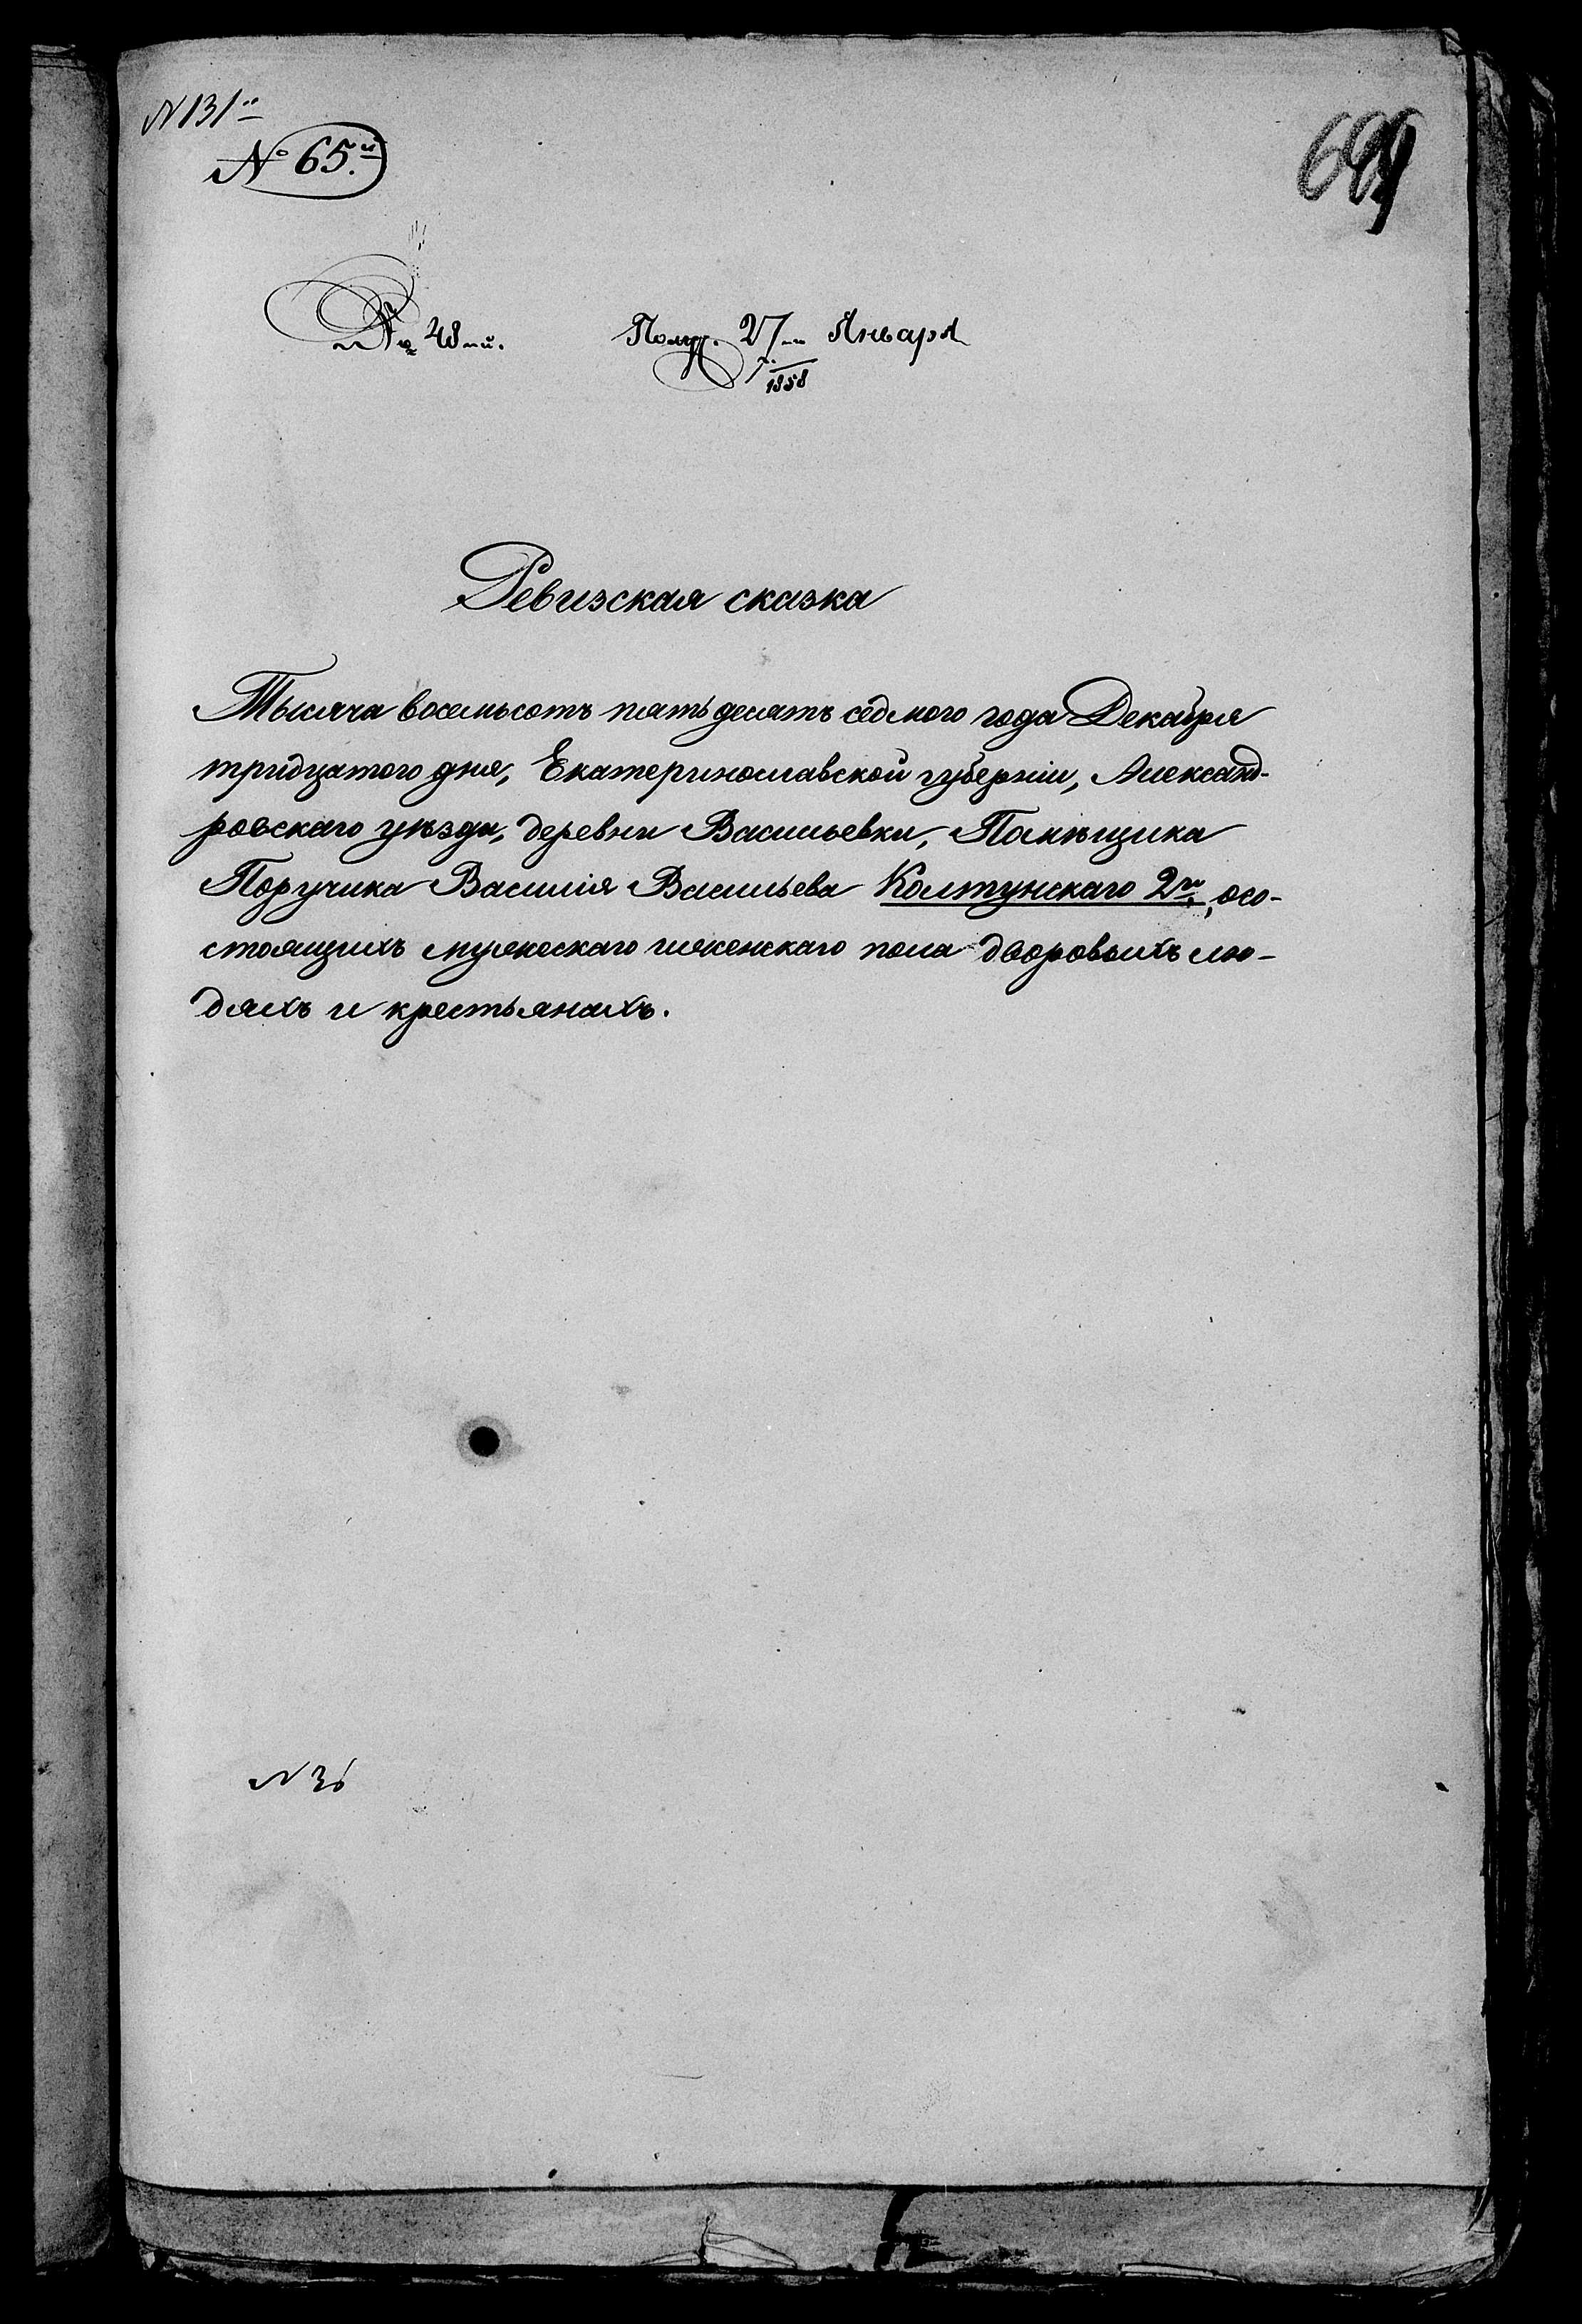 N 131й
№ 65й
699
№ 48й. Получ. 27го Января
1858
Ревизская сказка
Тысяча восемьсотъ пятьдесятъ седмого года Декабря
тридцатого дня, Екатеринославской губерніи, Александ-
ровскаго уѣзда, деревни Васильевки, Помѣщика
Поручика Василія Васильева Колтунскаго 2го, о со-
стоящихъ мужескаго и женскаго пола дворовыхъ лю-
дяхъ и крестьянахъ.
N 36